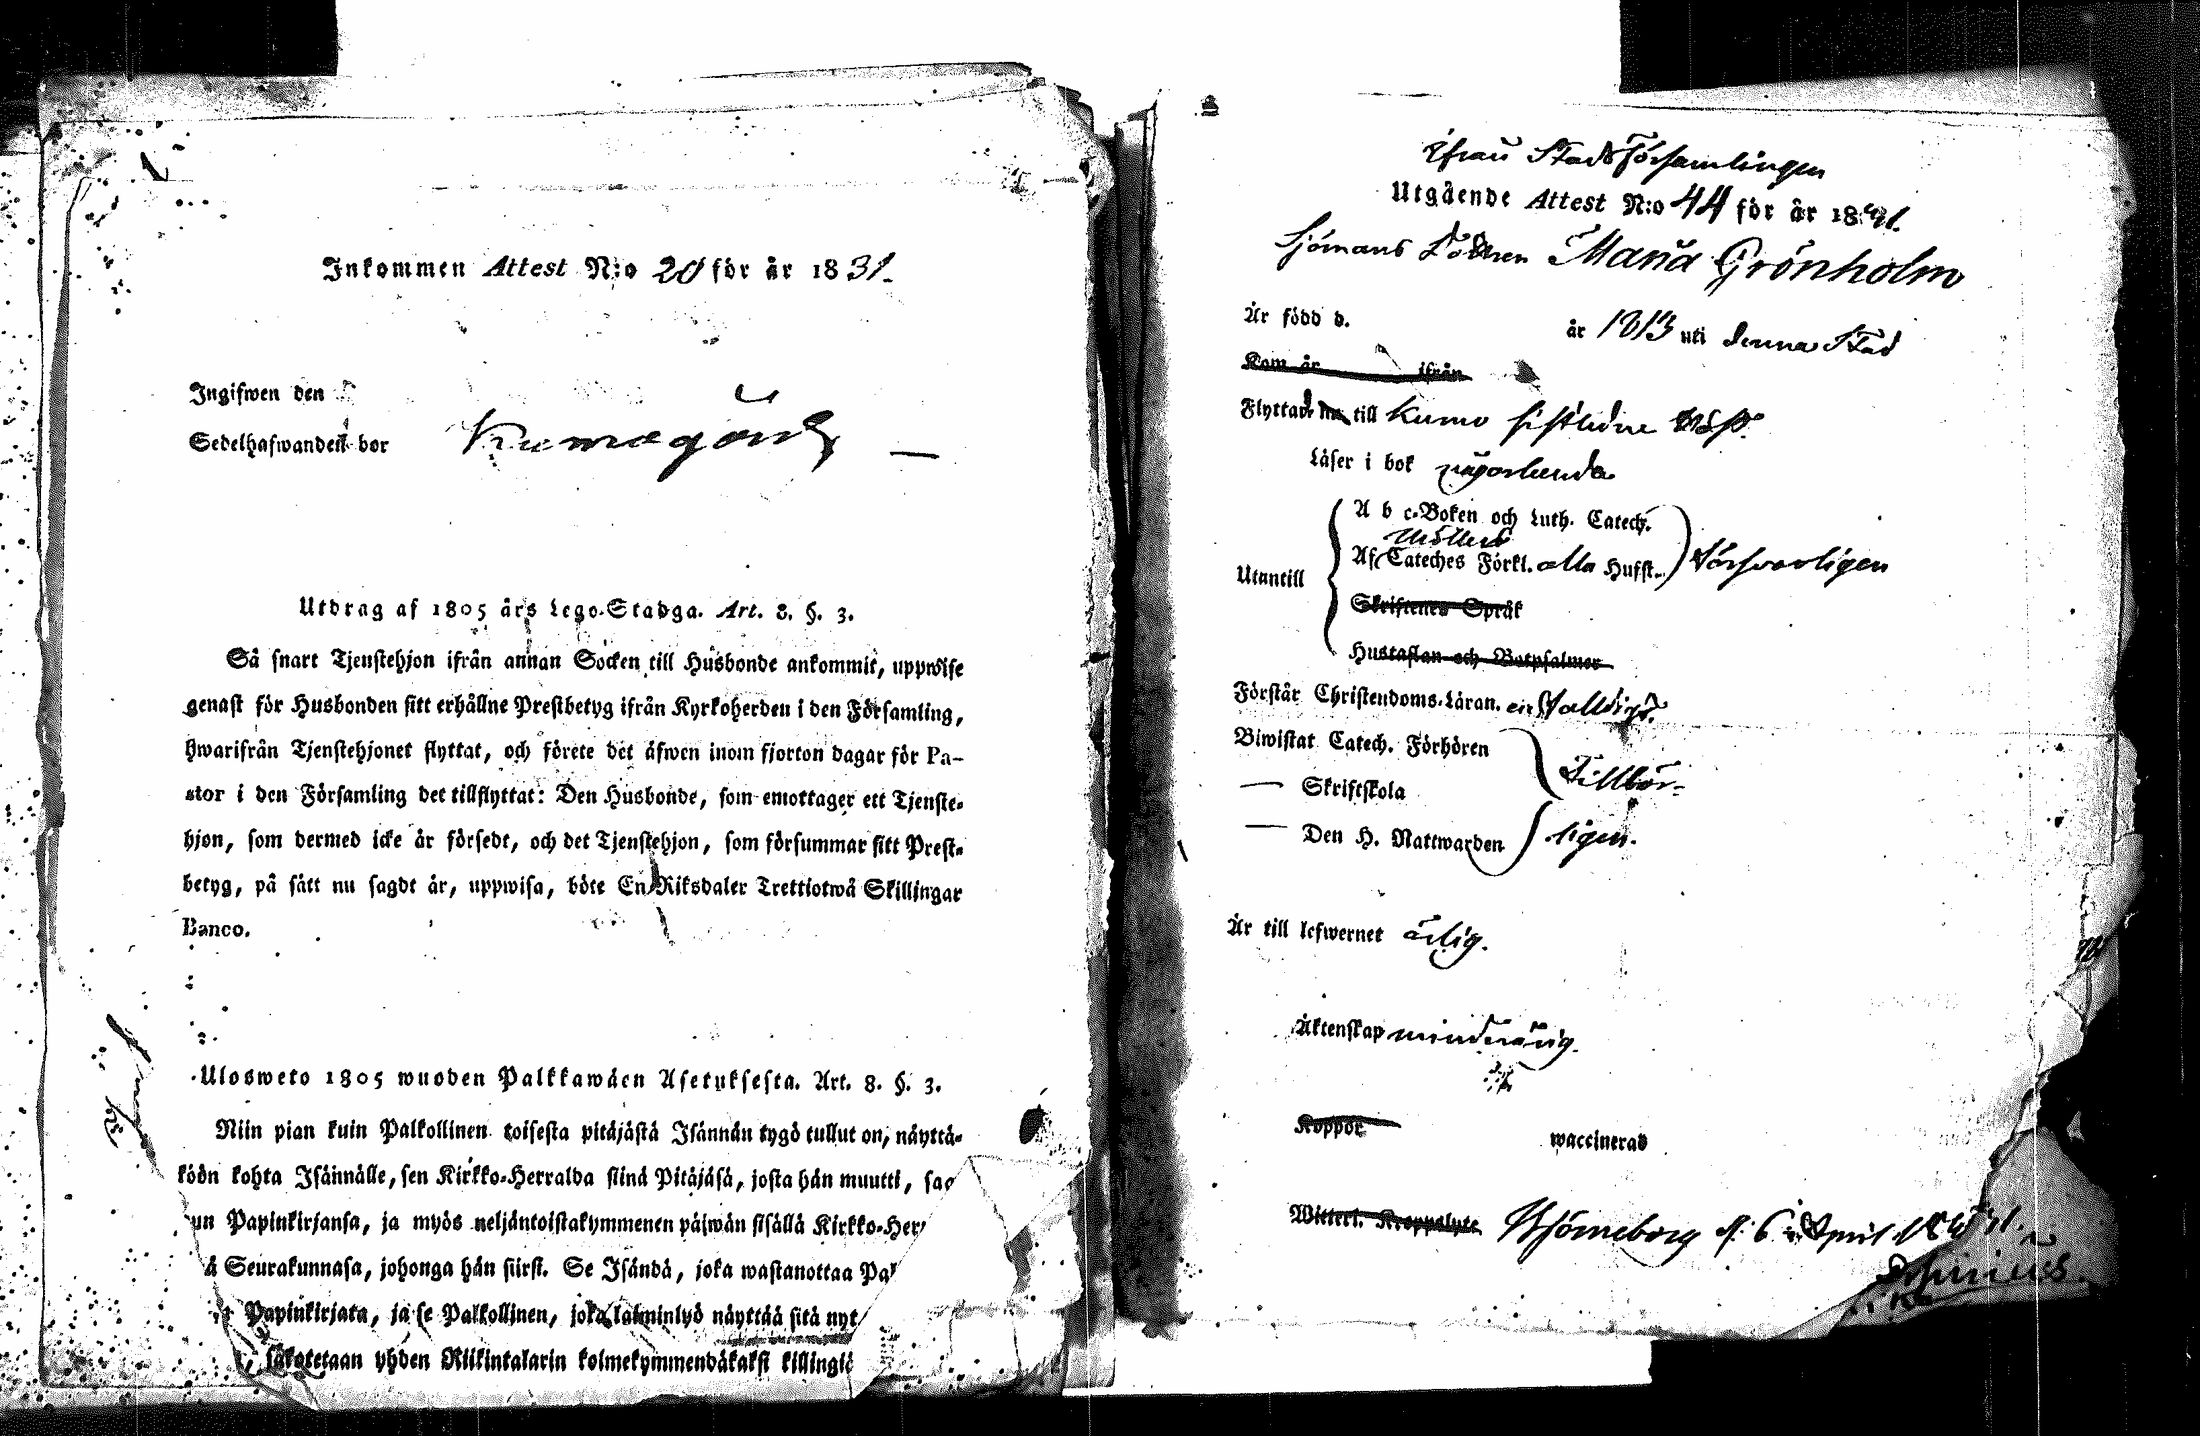 Inkommen Attest N:o 20 för år 1831.
Ingifwen den
Sedelhafwanden bor Kumogård
Utdrag af 1805 års Lego-Stadga. Art. 8. §. 3.
Så snart Tjenstehjon ifrån annan Socken till Husbonde ankommit, uppwise
genast för Husbonden sitt erhållne Prestbetyg ifrån Kyrkoherden i den Församling,
hwarifrån Tjenstehjonet flyttat, och förete det äfwen inom fjorton dagar för Pa-
stor i den Församling det tillflyttat: Den Husbonde, som emottager ett Tjenste-
hjon, som dermed icke är försedt, och det Tjenstehjon, som försummar sitt Prest-
betyg, på sätt nu sagdt är, uppwisa, böte En Riksdaler Trettiotwå Skillingar
Banco.
Ulosweto 1805 wuoden Palkkawäen Asetuksesta. Art. 8. §. 3.
Niin pian kuin Palkollinen toisesta pitäjästä Isännän tygö tullut on, näyttä-
köön kohta Isännälle, sen Kirkko-Herralda siinä Pitäjäsä, josta hän muutti, saa
un Papinkirjansa, ja myös neljäntoistakymmenen päiwän sisällä Kirkko-Her
ä Seurakunnasa, johonga hän siirsi. Se Isändä, joka wastanottaa Pal
Papinkirjata, ja se Palkollinen, joka laiminlyö näyttää sitä nyt
, sakotetaan yhden Riikintalarin kolmekymmendäkaksi killingiä
ifrån Stads församlingen
Utgående Attest N:o 44 för år 1831.
Sjömans Dottren Maria Grönholm
Är född d. år 1813 uti denna Stad
Kom år ifrån
Flyttade till Kumo sistledne Höst.
Läser i bok någorlunda
A b c-Boken och Luth. Catech.
Möllers
Utantill Af Cateches Förkl. alla Hufst. försvarligen
Skriftenes Språk
Hustaflan och Botpsalmer
Förstår Christendoms-Läran. enfalldigt.
Biwistat Catech. Förhören
— Skriftskola Tillbör-
— Den H. Nattwarden ligen.
Är till lefwernet ärlig.
Äktenskap minderårig.
Koppor waccinerad
Witterl. Kroppslyte Björneborg d. 6 April 1831.